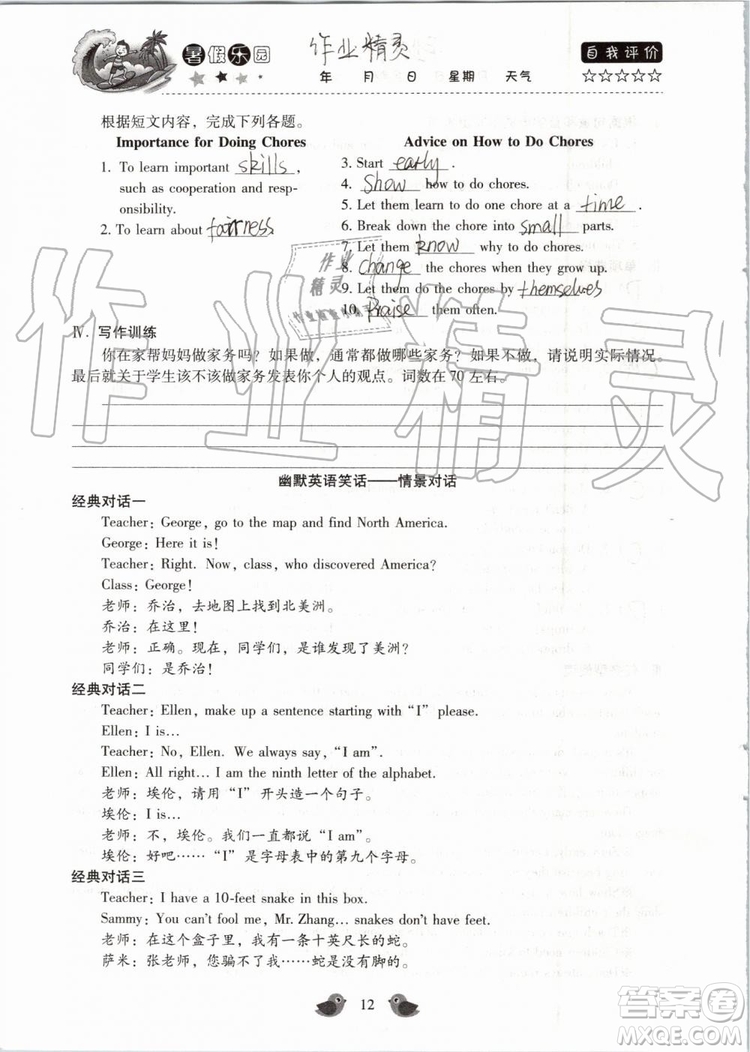 暑假乐园
作业精灵
年 月 日 星期 天气
自我评价
☆☆☆☆☆
根据短文内容，完成下列各题。
Importance for Doing Chores
1. To learn important skills ,
such as cooperation and resp-
onsibility.
2. To learn about fairness
Advice on How to Do Chores
3. Start early .
4. Show how to do chores.
5. Let them learn to do one chore at a time .
6. Break down the chore into small parts.
7. Let them know why to do chores.
8. Change the chores when they grow up.
9. Let them do the chores by themselves
10. Praise them often.
Ⅳ. 写作训练
你在家帮妈妈做家务吗？如果做，通常都做哪些家务？如果不做，请说明实际情况。
最后就关于学生该不该做家务发表你个人的观点。词数在 70 左右。
幽默英语笑话——情景对话
经典对话一
Teacher: George, go to the map and find North America.
George: Here it is!
Teacher: Right. Now, class, who discovered America?
Class: George!
老师：乔治，去地图上找到北美洲。
乔治：在这里！
老师：正确。现在，同学们，是谁发现了美洲？
同学们：是乔治！
经典对话二
Teacher: Ellen, make up a sentence starting with “I” please.
Ellen: I is…
Teacher: No, Ellen. We always say, “I am”.
Ellen: All right… I am the ninth letter of the alphabet.
老师：埃伦，请用“I”开头造一个句子。
埃伦：I is…
老师：不，埃伦。我们一直都说“I am”。
埃伦：好吧……“I”是字母表中的第九个字母。
经典对话三
Teacher: I have a 10-feet snake in this box.
Sammy: You can't fool me, Mr. Zhang… snakes don't have feet.
老师：在这个盒子里，我有一条十英尺长的蛇。
萨米：张老师，您骗不了我……蛇是没有脚的。
12
作业精灵
作业精灵
答案圈
MXQE.COM